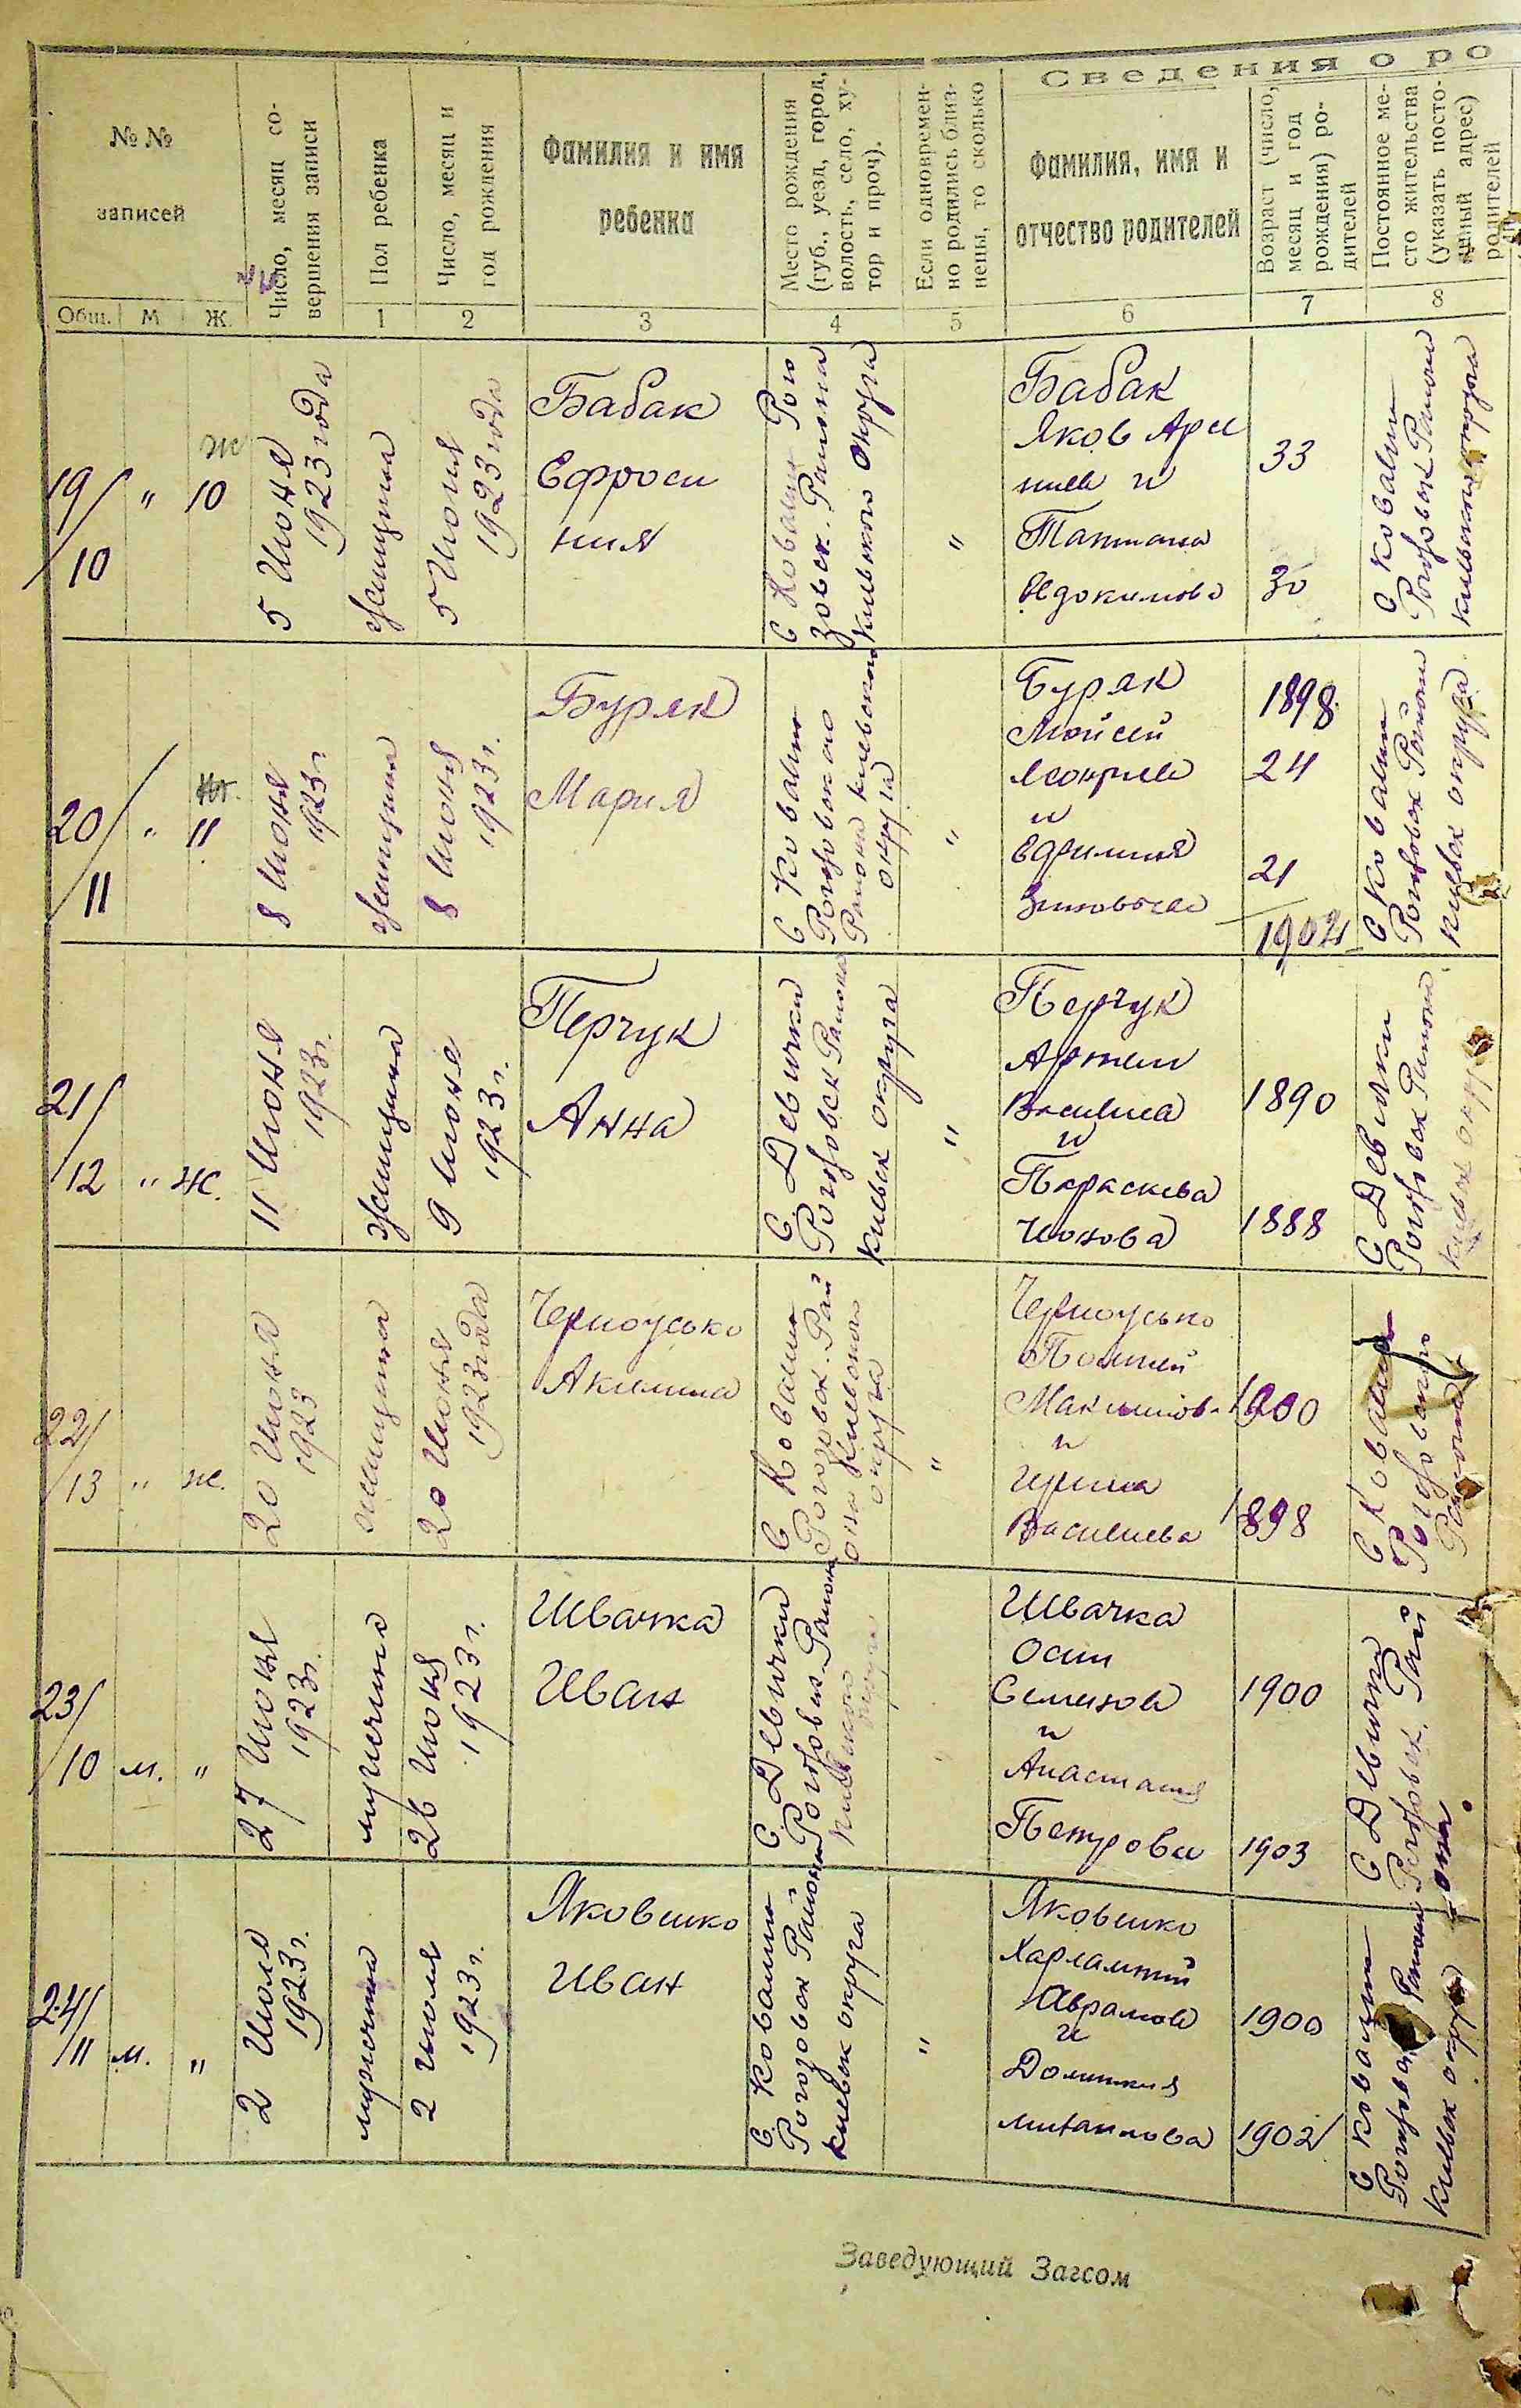 Сведения о ро
№ №
записей
Число, месяц со-
вершения записи
Пол ребенка
Число, месяц и
год рождения
Фамилия и имя
ребенка
Место рождения
(губ., уезд, город,
волость, село, ху-
тор и проч).
Если одновремен-
но родились близ-
нецы, то сколько
Фамилия, имя и
отчество родителей
Возраст (число,
месяц и год
рождения) ро-
дителей
Постоянное ме-
сто жительства
(указать посто-
янный адрес)
родителей
Общ. М Ж. 1 2 3 4 5 6 7 8
19/10 " ж 10
5 Июня
1923 года
женщина
5 Июня
1923 года
Бабак
Ефроси
ния
С Ковалин Рого
зовск. Района
Киевского Округа
"
Бабак
Яков Арсе
ниев и
Татиана
Евдокимова
33
30
С Ковалин
Рогозовск Района
Киевского округа
20/11 " 11
8 Июня
1923 г.
женщина
8 Июня
1923 г.
Буряк
Мария
С Ковалин
Рогозовского
Района Киевского
округа
"
Буряк
Мойсей
и
Зиновьева
1898
24
21
1902
С Ковалин
Рогозовск Района
Киевск округа
21/12 " ж.
11 Июня
1923 г.
женщина
9 Июня
1923 г.
Перчук
Анна
С. Девички
Рогозовск Района
Киевск округа
"
Перчук
Артем
Василиев
и
Параскева
Ионова
1890
1888
С Девички
Рогозовск Района
Киевск округ
22/13 " ж.
20 Июня
1923
женщина
20 Июня
1923 года
Черноусько
Акилина
С Ковалин
Рогозовск. Рай
она Киевского
округа
"
Черноусько
Максимов
и
Ирина
Василиева
1900
1898
С Ковалин
Рогозовского
Района
23/10 м. "
27 Июня
1923 г.
мужчина
26 Июня
1923 г.
Швачка
Иван
С. Девички
Рогозовск Района
Киевского
Швачка
Осип
Семенов
и
Анастасия
Петрова
1900
1903
С Девички
Рогозовск. Рай
она
24/11 м. "
2 Июля
1923 г.
мужчина
2 Июля
1923 г.
Яковенко
Иван
С. Ковалин
Рогозовск Района
Киевск округа
"
Яковенко
Харлампий
Аврамов
и
Домникия
Михаилова
1900
1902
С Ковалин
Рогозовск Района
Киевск округа
Заведующий Загсом